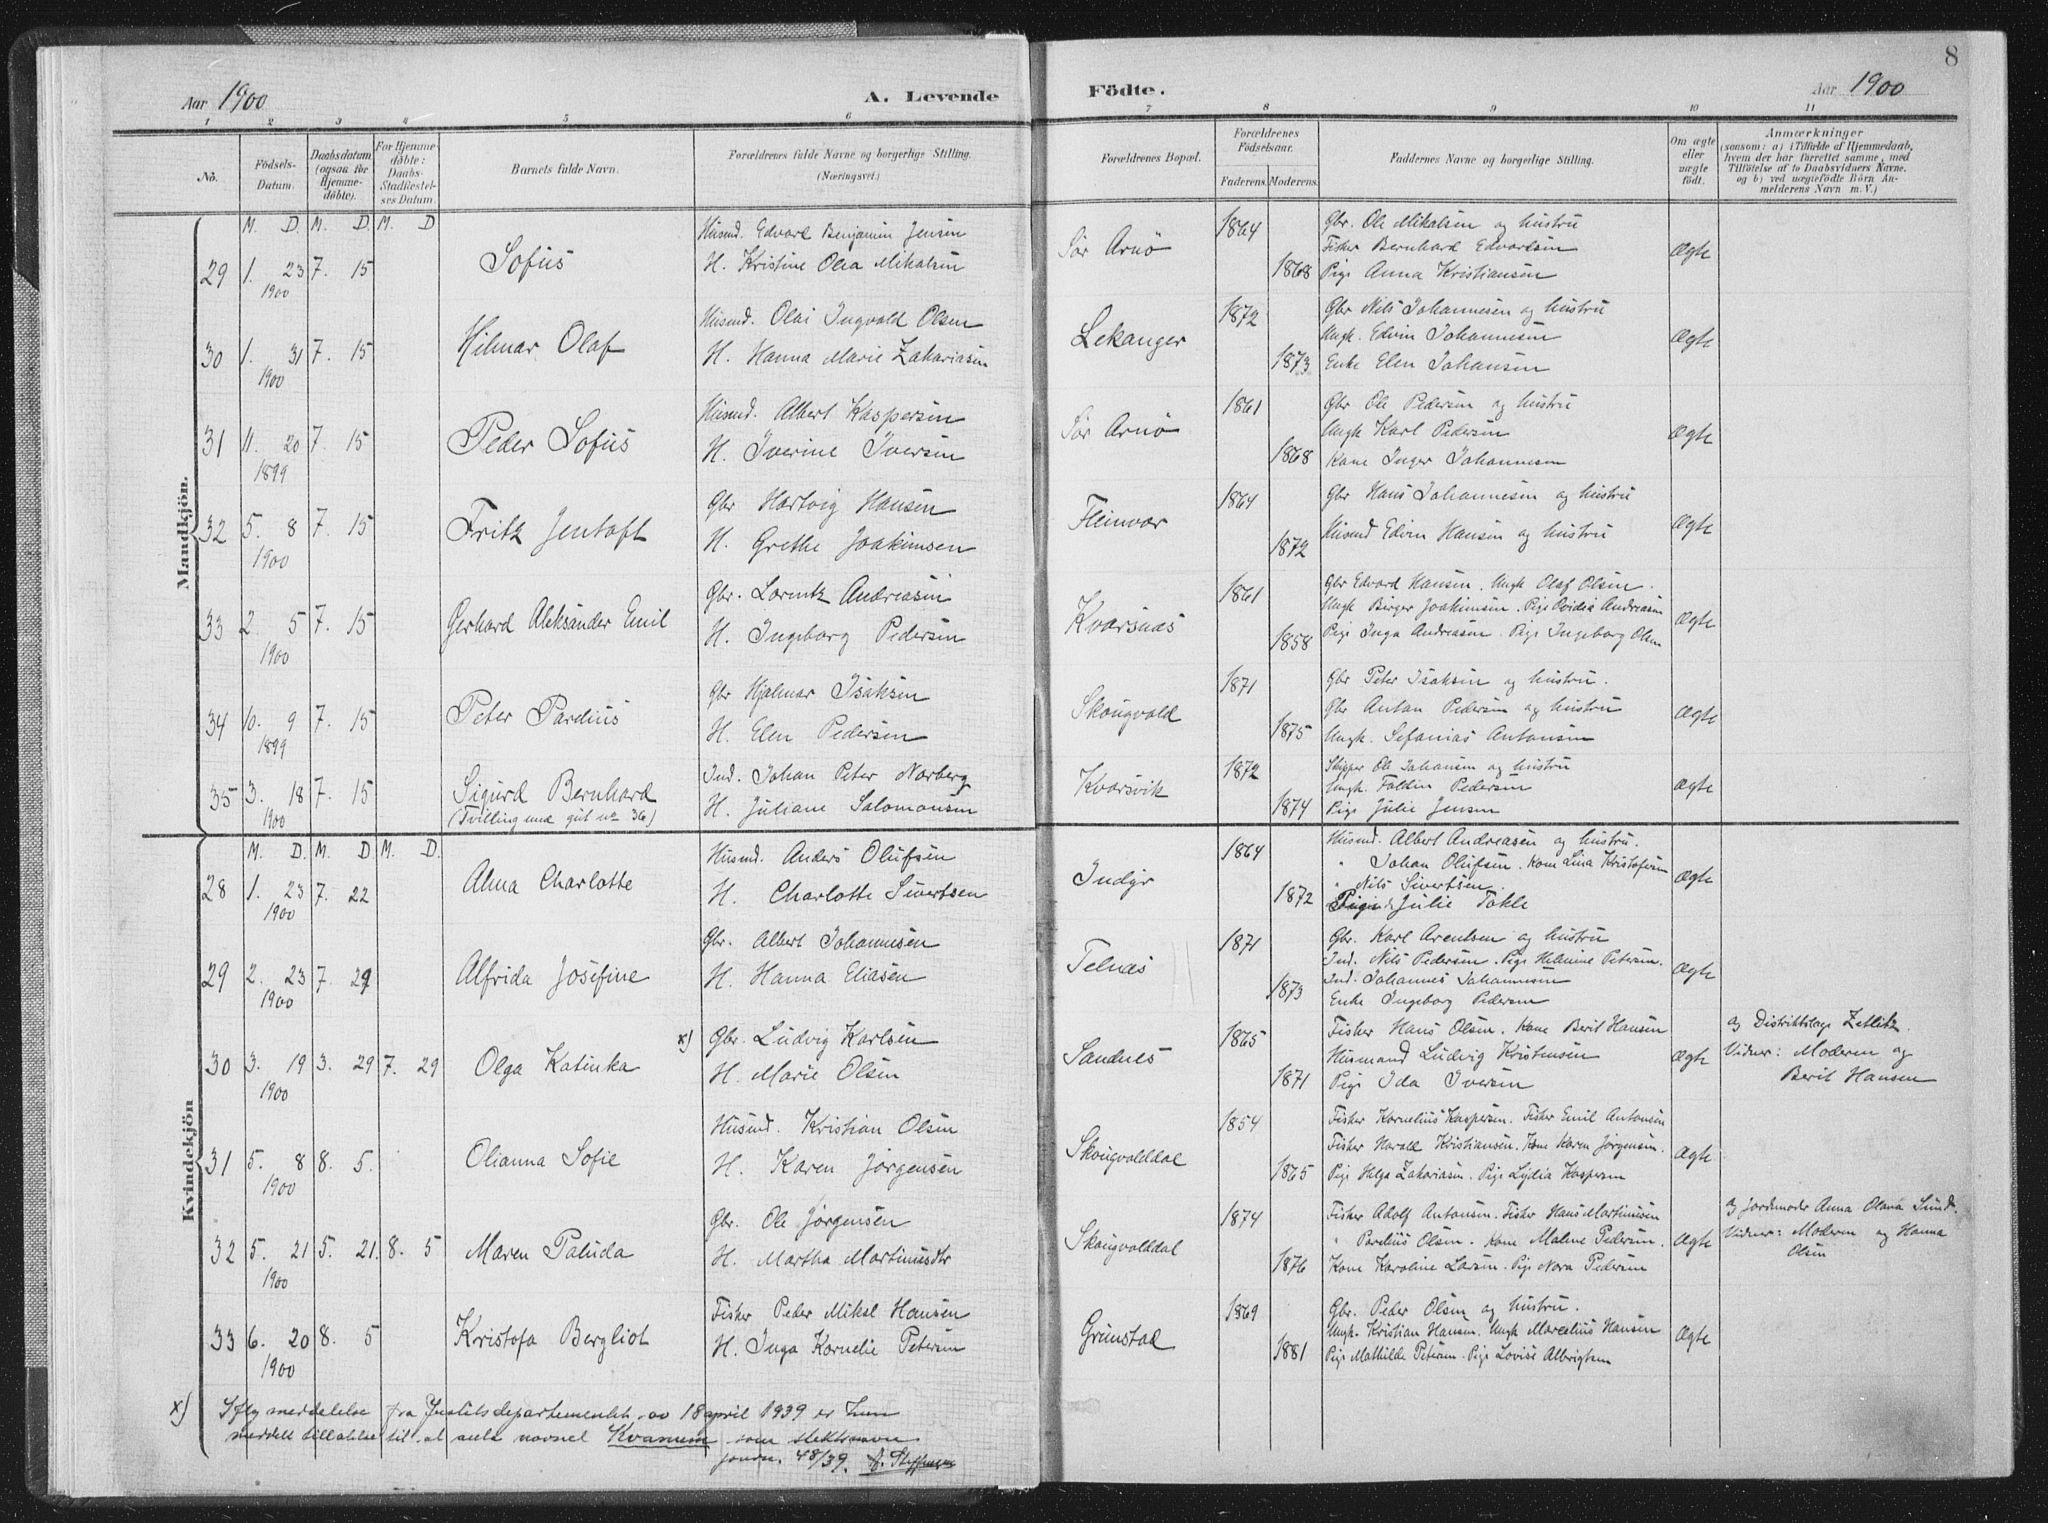 8
Aar 1900
A. Levende
Födte.
Aar 1900
1 2 3 4 5 6 7 8 9 10 11
No.
Födsels-Datum.
Daabsdatum (ogsaa for Hjemme-döbte).
For Hjemme-döbte: Daabs-Stadfæstel-ses Datum.
Barnets fulde Navn.
Forældrenes fulde Navne og borgerlige Stilling. (Næringsvei.)
Forældrenes Bopæl.
Forældrenes Födselsaar.
Faderens. Moderens.
Faddernes Navne og borgerlige Stilling.
Om ægte eller uægte født.
Anmærkninger
(saasom: a) i Tilfælde af Hjemmedaab, hvem der har forrettet samme, med Tilföielse af to Daabsvidners Navne, og b) ved uægtefödte Börn An-melderens Navn m. V.)
Mandkjön.
M. D. M. D. M. D
29 1. 23 1900 7. 15 Sofus
Husmd. Edvard Benjamin Jensen
H. Kristine Olea Mikalsen
Sör Arnö 1864 1868
Gbr. Ole Mikalsen og hustru
Fisker Bernhard Edvardsen
Pige Anna Kristiansen
Ægte
30 1. 31 1900 7. 15 Hilmar Olaf
Husmd. Olai Ingvald Olsen
H. Hanna Marie Zakariasen
Lekanger 1872 1873
Gbr Nils Johannesen og hustru
Ungk. Edvin Johannesen
Enke Elen Johansen
Ægte
31 11. 20 1899 7. 15 Peder Sofus
Husmd. Albert Kaspersen
H. Iverine Iversen
Sör Arnö 1861 1868
Gbr Ole Pedersen og hustru
Ungk Karl Pedersen
Kone Inger Johannesen
Ægte
32 5. 8 1900 7. 15 Fritz Jentoft
Gbr Hartvig Hansen
H. Grethe Joakimsen
Fleinvær 1864 1872
Gbr Hans Johannesen og hustru
Husmd Edvin Hansen og hustru
Ægte
33 2. 5 1900 7. 15 Gerhard Aleksander Emil
Gbr. Lorentz Andreasen
H. Ingeborg Pedersen
Kvarsnæs 1861 1858
Gbr Edvard Hansen. Ungk Olaf Olsen.
Ungk Birger Joakimsen. Pige Ovidia Andreasen
Pige Inga Andreasen. Pige Ingeborg Olsen
Ægte
34 10. 9 1899 7. 15 Peter Pardius
Gbr Hjalmar Isaksen
H. Elen Pedersen
Skougvold 1871 1875
Gbr Peter Isaksen og hustru.
Gbr Anton Pedersen og hustru
Ungk. Sefanias Antonsen
Ægte
35 3. 18 1900 7. 15 Sigurd Bernhard
(Tvilling med gut no 36)
Ind. Johan Peter Norberg
H. Juliane Salomonsen
Kvarsvik 1872 1874
Skipper Ole Johansen og hustru
Ungk. Foldin Pedersen
Pige Julie Jensen
Ægte
Kvindekjön
M. D. M. D M. D.
28 1. 23 1900 7. 22 Alma Charlotte
Husmd. Anders Olufsen
H. Charlotte Sivertsen
Indyr 1864 1872
Husmd. Albert Andreasen og hustru.
" Johan Olufsen. Kone Lina Kristofersen
" Nils Sivertsen.
Pige Julie Tokle
Ægte
29 2. 23 1900 7. 29 Alfrida Josefine
Gbr. Albert Johannesen
H. Hanna Eliasen
Telnæs 1871 1873
Gbr. Karl Arentsen og hustru
Ind. Nils Pedersen. Pige Helmine Petersen.
Ind. Johannes Johannesen
Enke Ingeborg Pedersen
Ægte
30 3. 19 1900 3. 29 7. 29 Olga Katinka
x) Gbr. Ludvig Karlsen
H. Marie Olsen
Sandnes 1865 1871
Fisker Hans Olsen. Kone Beril Hansen
Husmand Ludvig Kristensen
Pige Ida Iversen
Ægte
a) Distriktslæge Zetlitz.
Vidner: Moderen og
Beril Hansen
31 5. 8 1900 8. 5. Olianna Sofie
Husmd. Kristian Olsen
H. Karen Jørgensen
Skougvolddal 1854 1865
Fisker Kornelius Kaspersen. Fisker Emil Antonsen
Fisker Harald Kristiansen. Kone Karen Jørgensen.
Pige Helga Zakariasen. Pige Lydia Kaspersen
Ægte
32 5. 21 1900 5. 21. 8. 5 Maren Paluda
Gbr. Ole Jørgensen
H. Martha Martinusdtr
Skougvolddal 1874 1876
Fisker Adolf Antonsen. Fisker Hans Martinusen
" Parelius Olsen. Kone Malene Pedersen.
Kone Karoline Larsen. Pige Nora Pedersen
Ægte
a) Jordemoder Anna Olava Sund.
Vidner: Moderen og Hanna
Olsen
33 6. 20 1900 8. 5 Kristofa Bergliot
Fisker Peder Mikal Hansen
H. Inga Kornelie Petersen
Grimstad 1869 1881
Gbr. Peder Olsen og hustru.
Ungk. Kristian Hansen. Ungk Marcelius Hansen
Pige Mathilde Petersen. Pige Lovise Albrigtsen
Ægte
x) Ifly meddelelse fra Justitsdepartementet av 18 april 1939 er hun
meddelt tillatelse til at anta navnet Kvamsen som slektsnavn
journ. 48/39. A. Steffensen